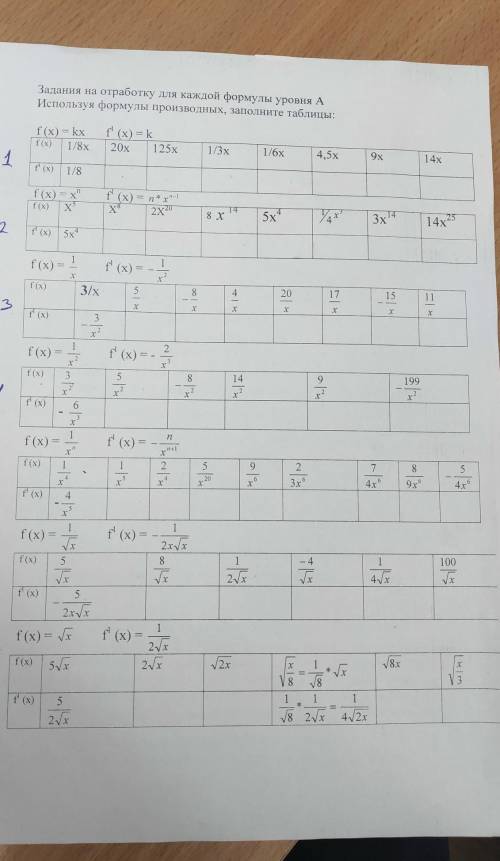 Задания на отработку для каждой формулы уровня А
Используя формулы производных, заполните таблицы:
f (x) = kx f¹ (x) = k
1
f (x) 1/8x 20x 125x 1/3x 1/6x 4,5x 9x 14x
f¹ (x) 1/8
f (x) = xⁿ f¹ (x) = n* xⁿ⁻¹
2
f (x) X⁵ X⁸ 2X²⁰ 8 X¹⁴ 5x⁴ 3x¹⁴ 14x²⁵
f¹ (x) 5x⁴
f (x) = 1/x f¹ (x) = - 1/x²
3
f (x) 3/x 5/x - 8/x 4/x 20/x 17/x - 15/x 11/x
f¹ (x) - 3/x²
f (x) = 1/x² f¹ (x) = - 2/x³
f (x) 3/x² 5/x² - 8/x² 14/x² 9/x² - 199/x²
f¹ (x) - 6/x³
f (x) = 1/xⁿ f¹ (x) = - n/xⁿ⁺¹
f (x) 1/x⁴ 1/x⁵ 2/x⁴ 5/x²⁰ 9/x⁶ 2/3x⁶ 7/4x⁶ 8/9x⁶ - 5/4x⁶
f¹ (x) - 4/x⁵
f (x) = 1/√x f¹ (x) = - 1/2x√x
f (x) 5/√x 8/√x 1/2√x -4/√x 1/4√x 100/√x
f¹ (x) - 5/2x√x
f (x) = √x f¹ (x) = 1/2√x
f (x) 5√x 2√x √2x √x/8 = 1/√8 * √x √8x √x/3
f¹ (x) 5/2√x 1/√8 * 1/2√x = 1/4√2x